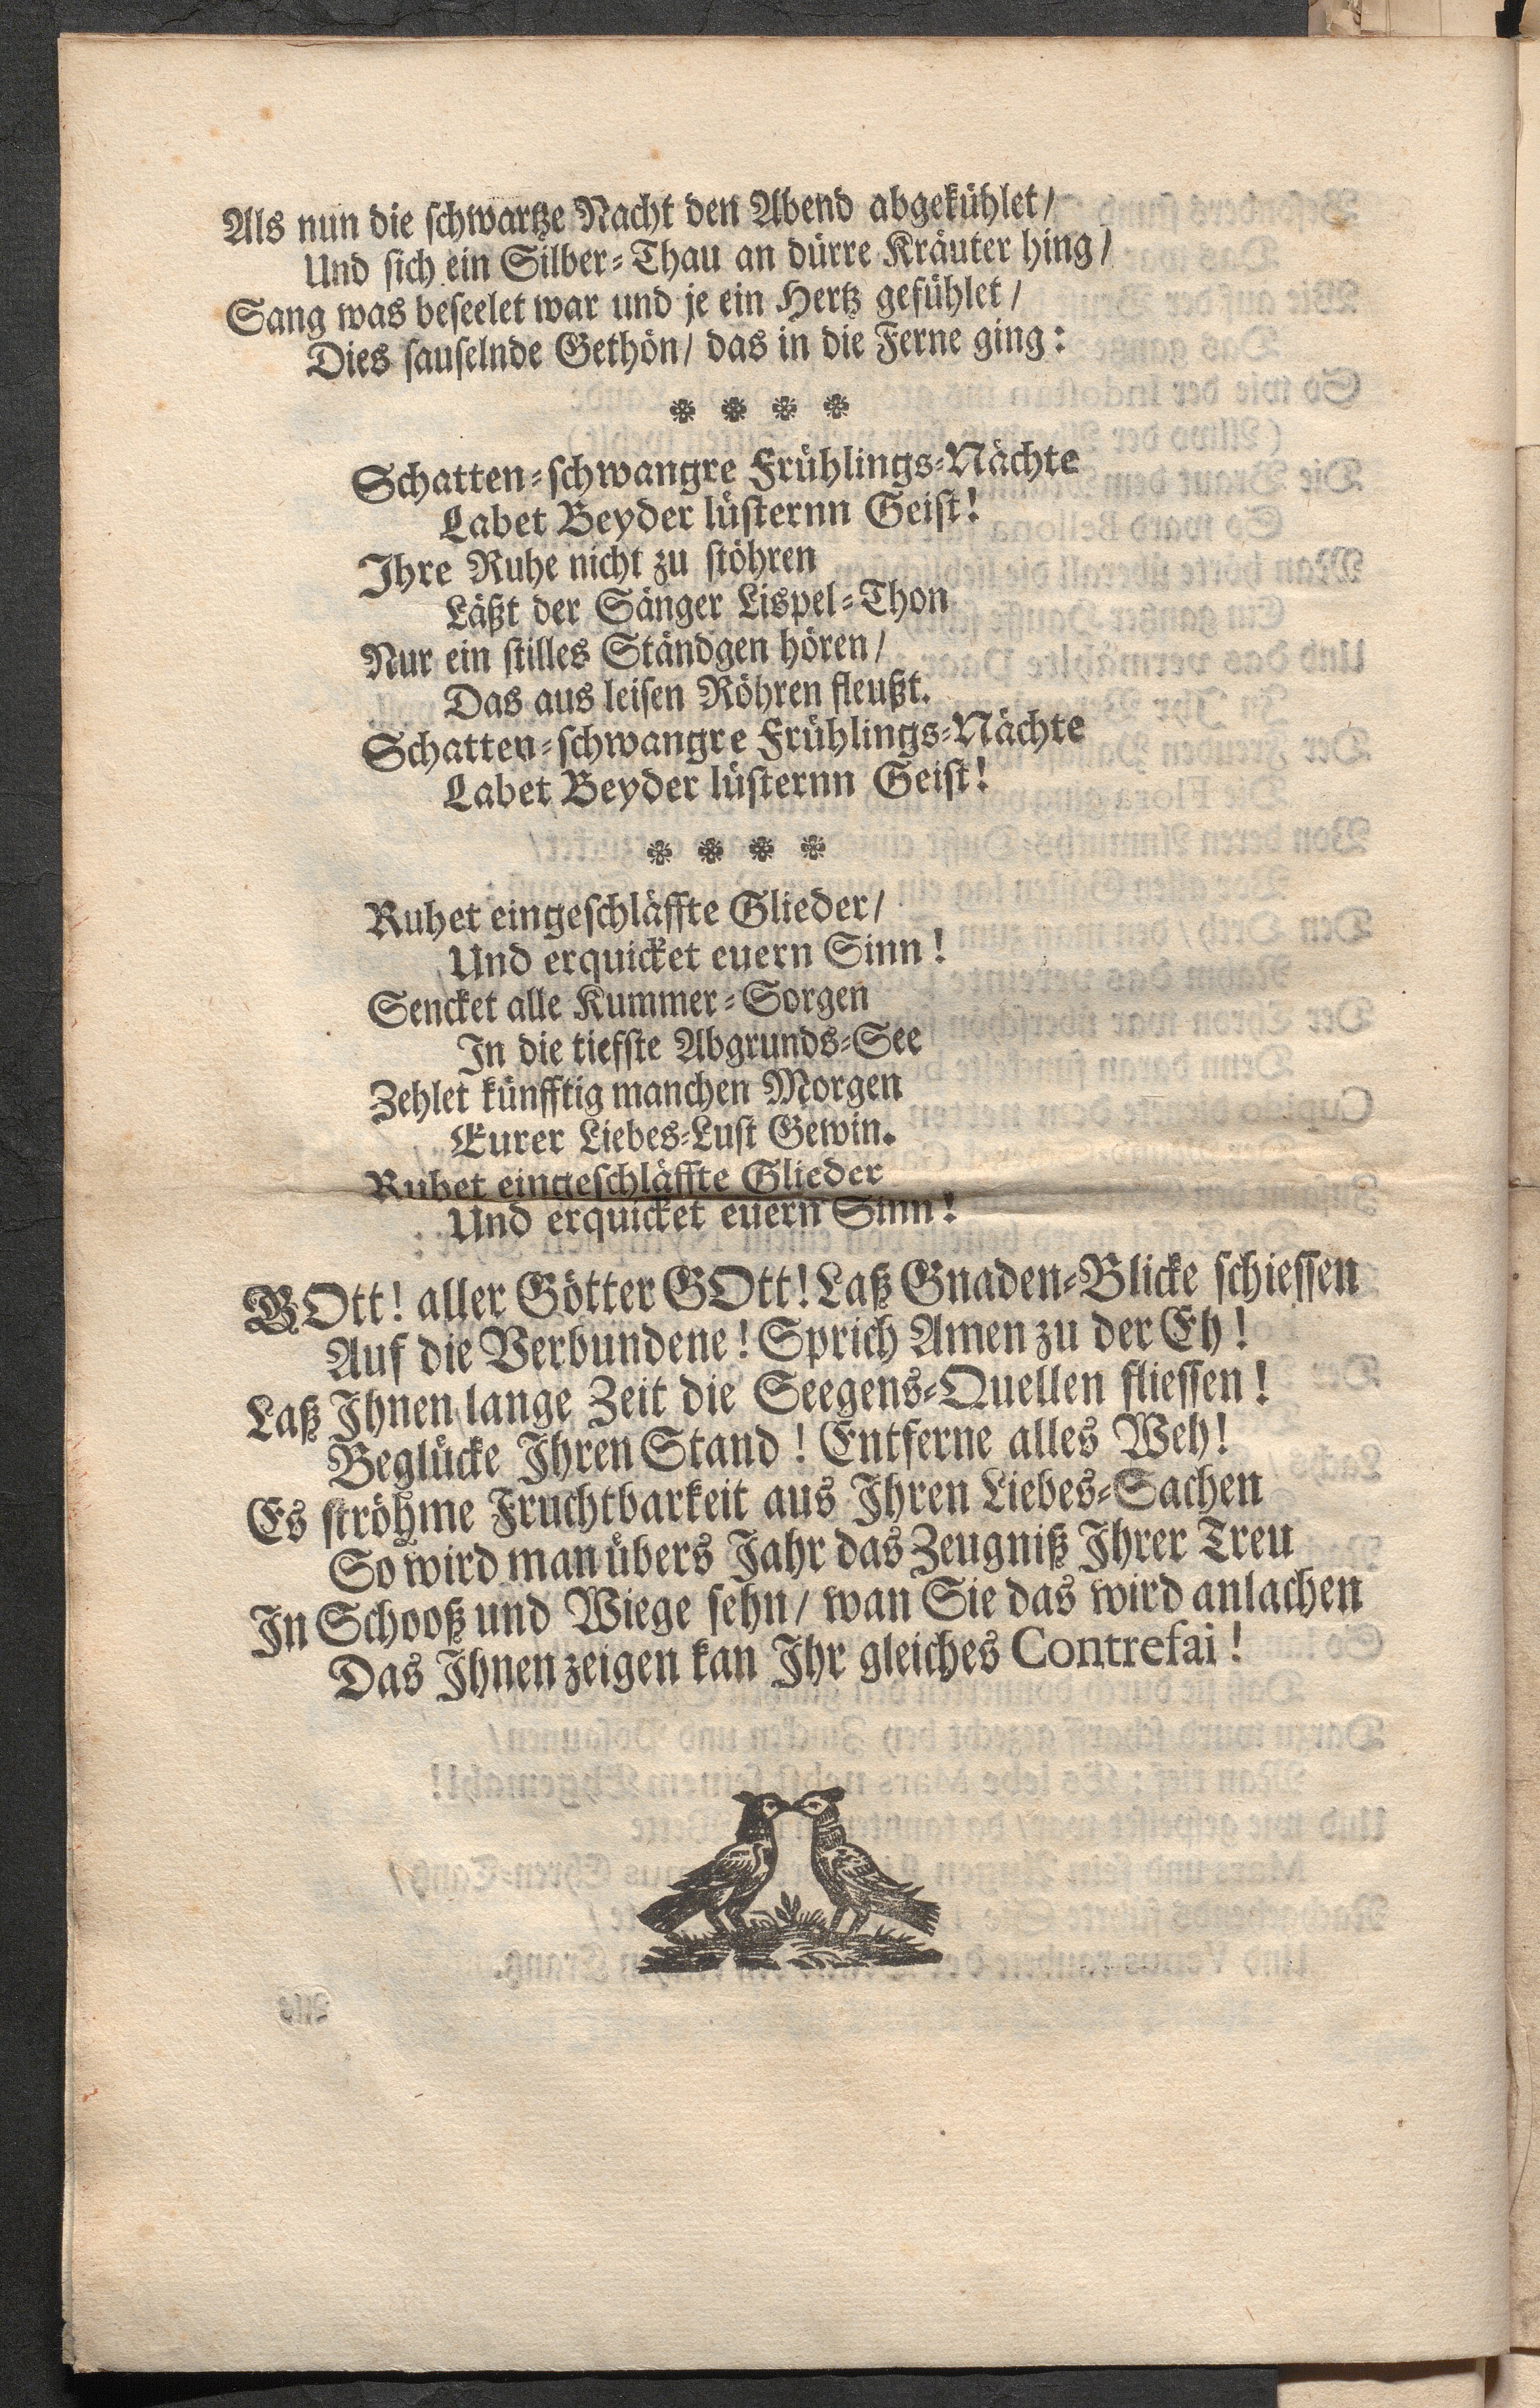 Als nun die schwartze Nacht den Abend abgekühlet/
Und sich ein Silber-Thau an dürre Kräuter hing/
Sang was beseelet war und je ein Hertz gefühlet/
Dies sauselnde Gethön/ das in die Ferne ging:
Schatten-schwangre Frühlings-Nächte
Labet Beyder lüsternn Geist!
Ihre Ruhe nicht zu stöhren
Läßt der Sänger Lispel-Thon
Nur ein stilles Ständgen hören/
Das aus leisen Röhren fleußt.
Schatten-schwangre Frühlings-Nächte
Labet Beyder lüsternn Geist!
Ruhet eingeschläffte Glieder/
Und erquicket euern Sinn!
Sencket alle Kummer-Sorgen
In die tiefste Abgrunds-See
Zehlet künfftig manchen Morgen
Eurer Liebes-Lust Gewin.
Ruhet eingeschläffte Glieder
Und erquicket euern Sinn!
GOtt! aller Götter GOtt! Laß Gnaden-Blicke schiessen
Auf die Verbundene! Sprich Amen zu der Eh!
Laß Ihnen lange Zeit die Seegens-Quellen fliessen!
Beglücke Ihren Stand! Entferne alles Weh!
Es ströhme Fruchtbarkeit aus Ihren Liebes-Sachen
So wird man übers Jahr das Zeugniß Ihrer Treu
In Schooß und Wiege sehn/ wan Sie das wird anlachen
Das Ihnen zeigen kan Ihr gleiches Contrefai!